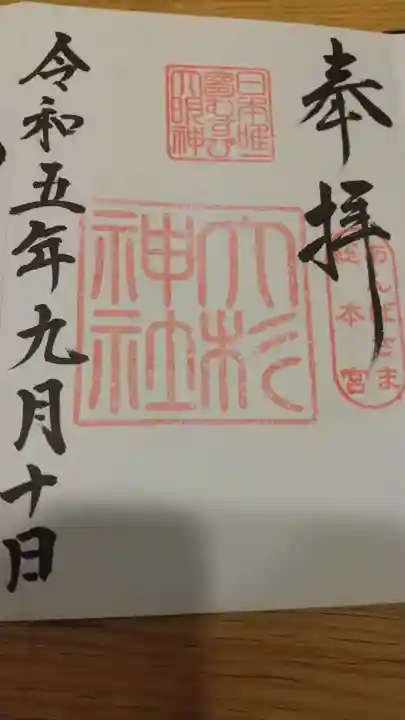 奉拝
あんばさま
総本宮
日本唯一
夢むすび
大明神
大杉
神社
令和五年九月十日